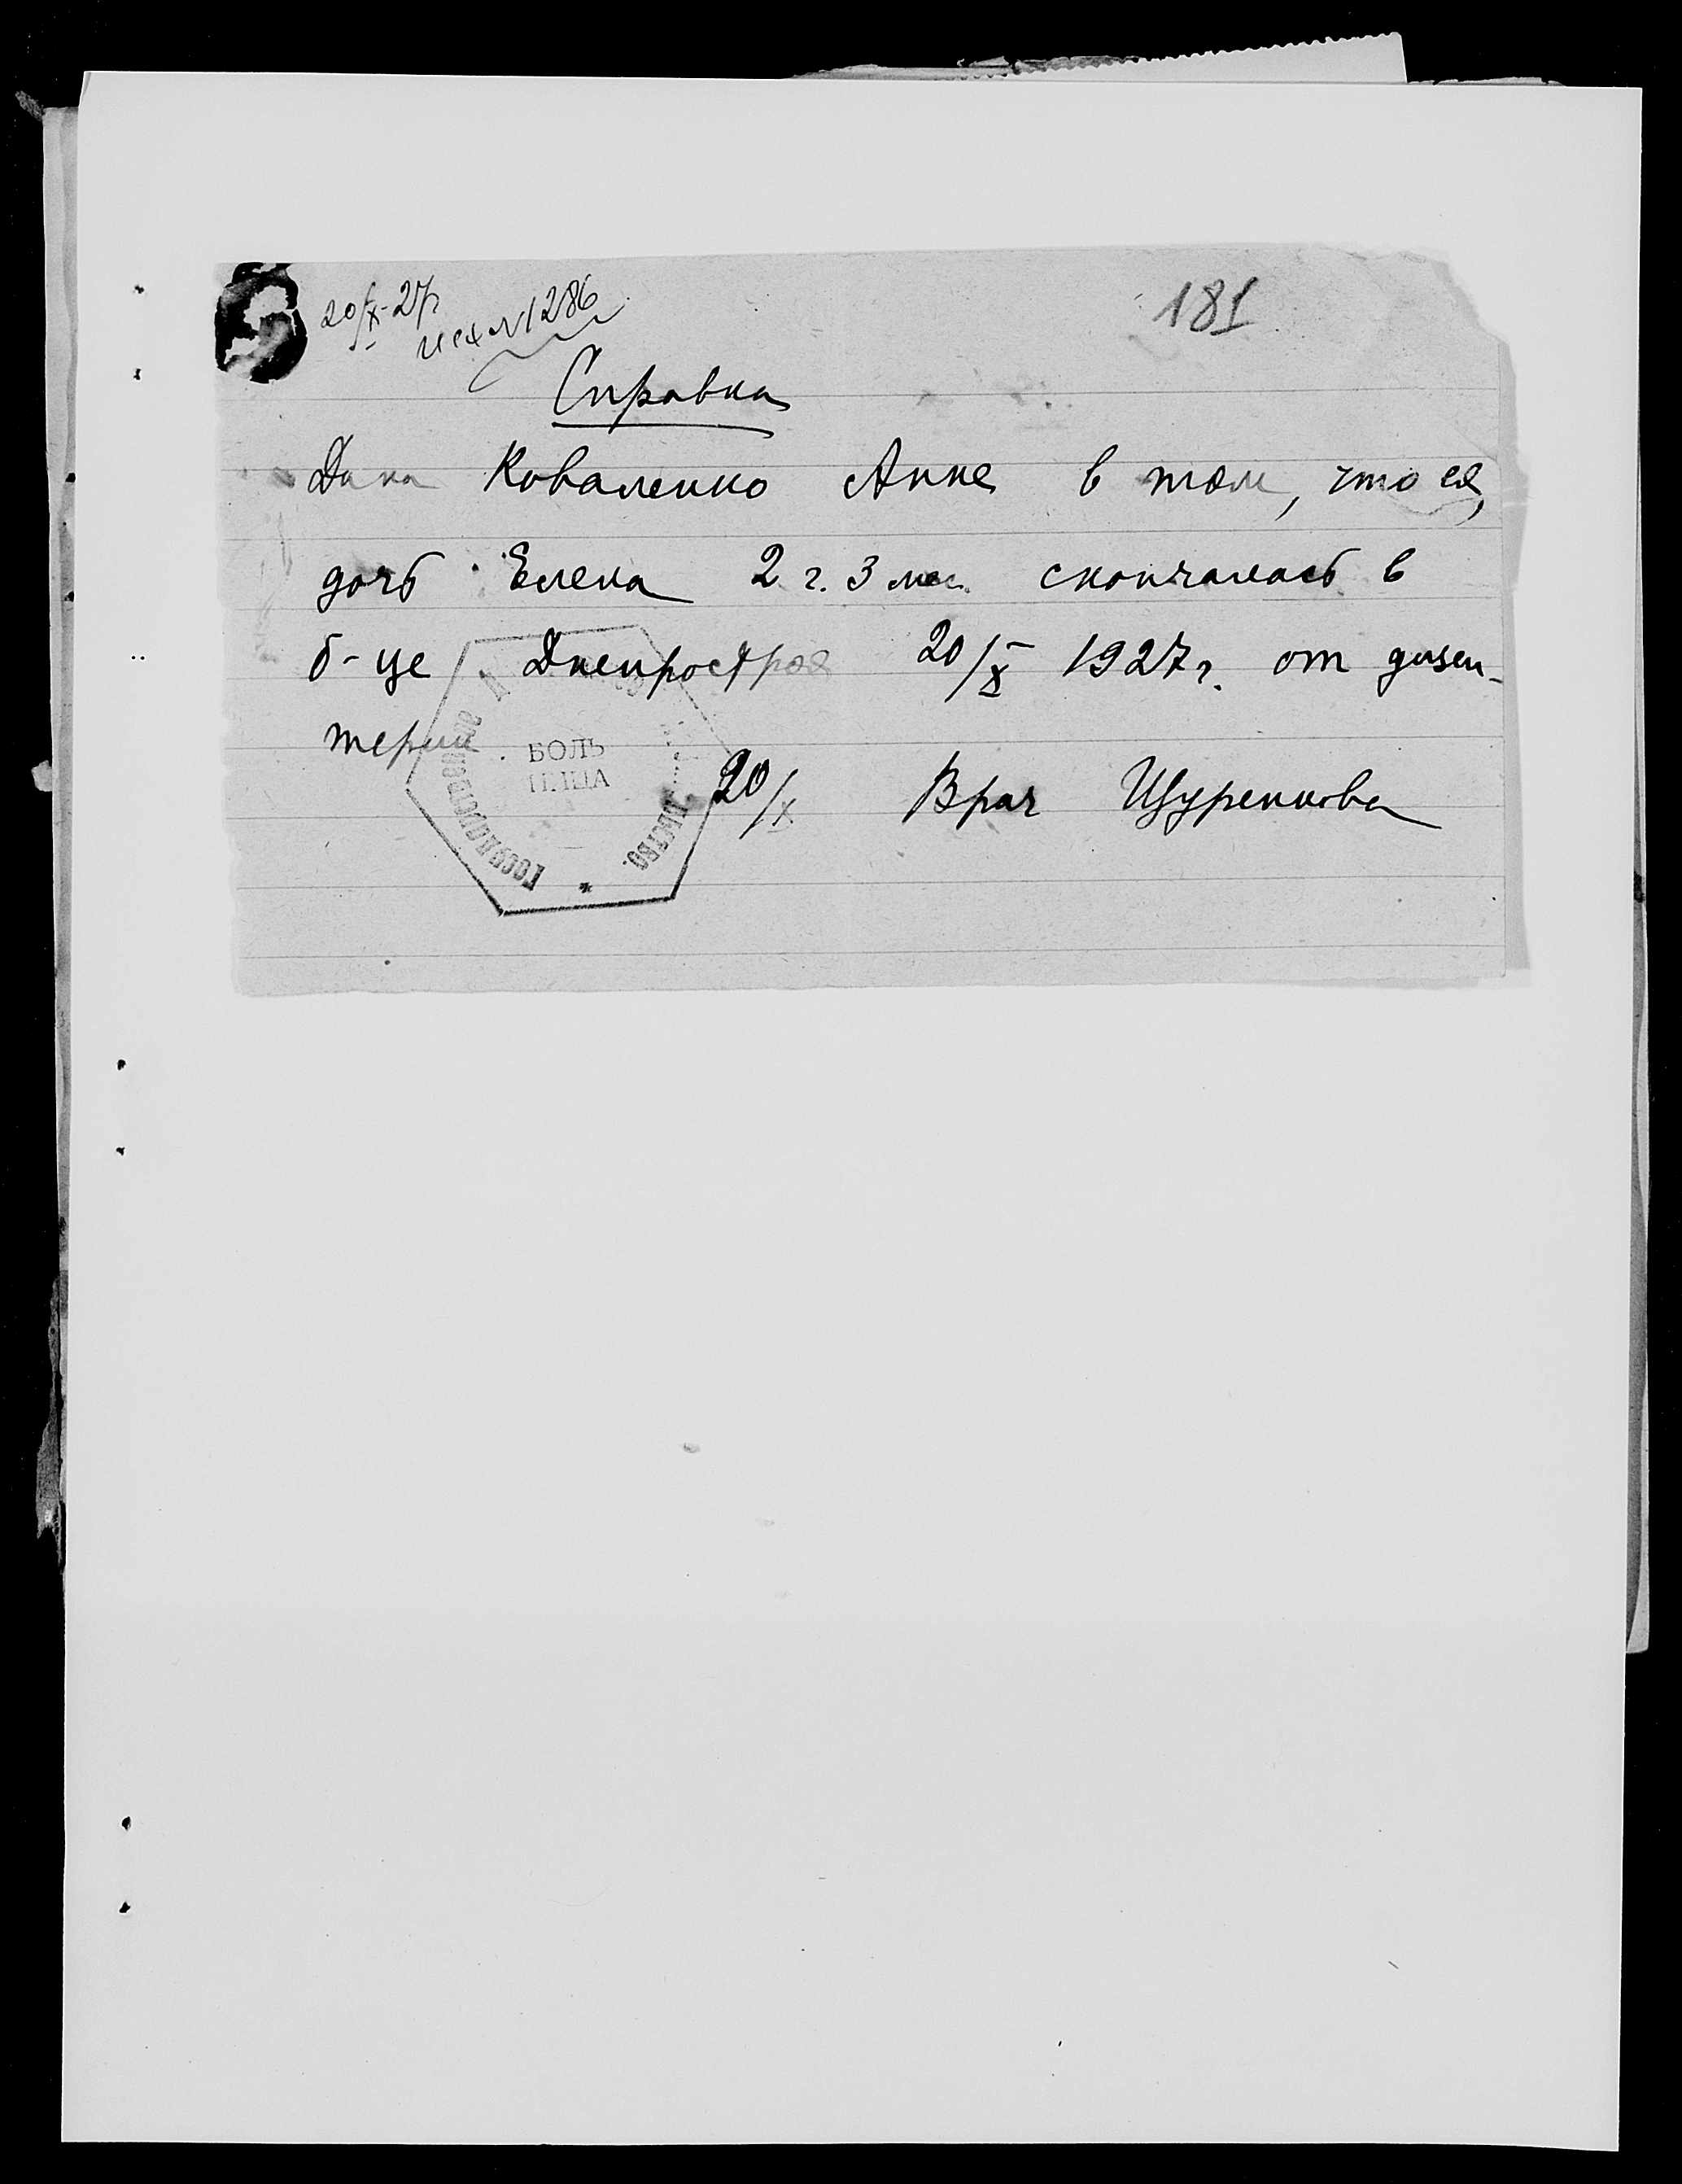 20/X-27г
исх №1286
181
Справка
Дана Коваленко Анне в том, что ея,
дочь Елена 2 г. 3 мес. скончалась в
б-це Днепростроя 20/X 1927г. от дизен-
терии
БОЛЬ
НИЦА
ГОСУДАРСТВЕННОЕ
20/X Врач Щуренкова